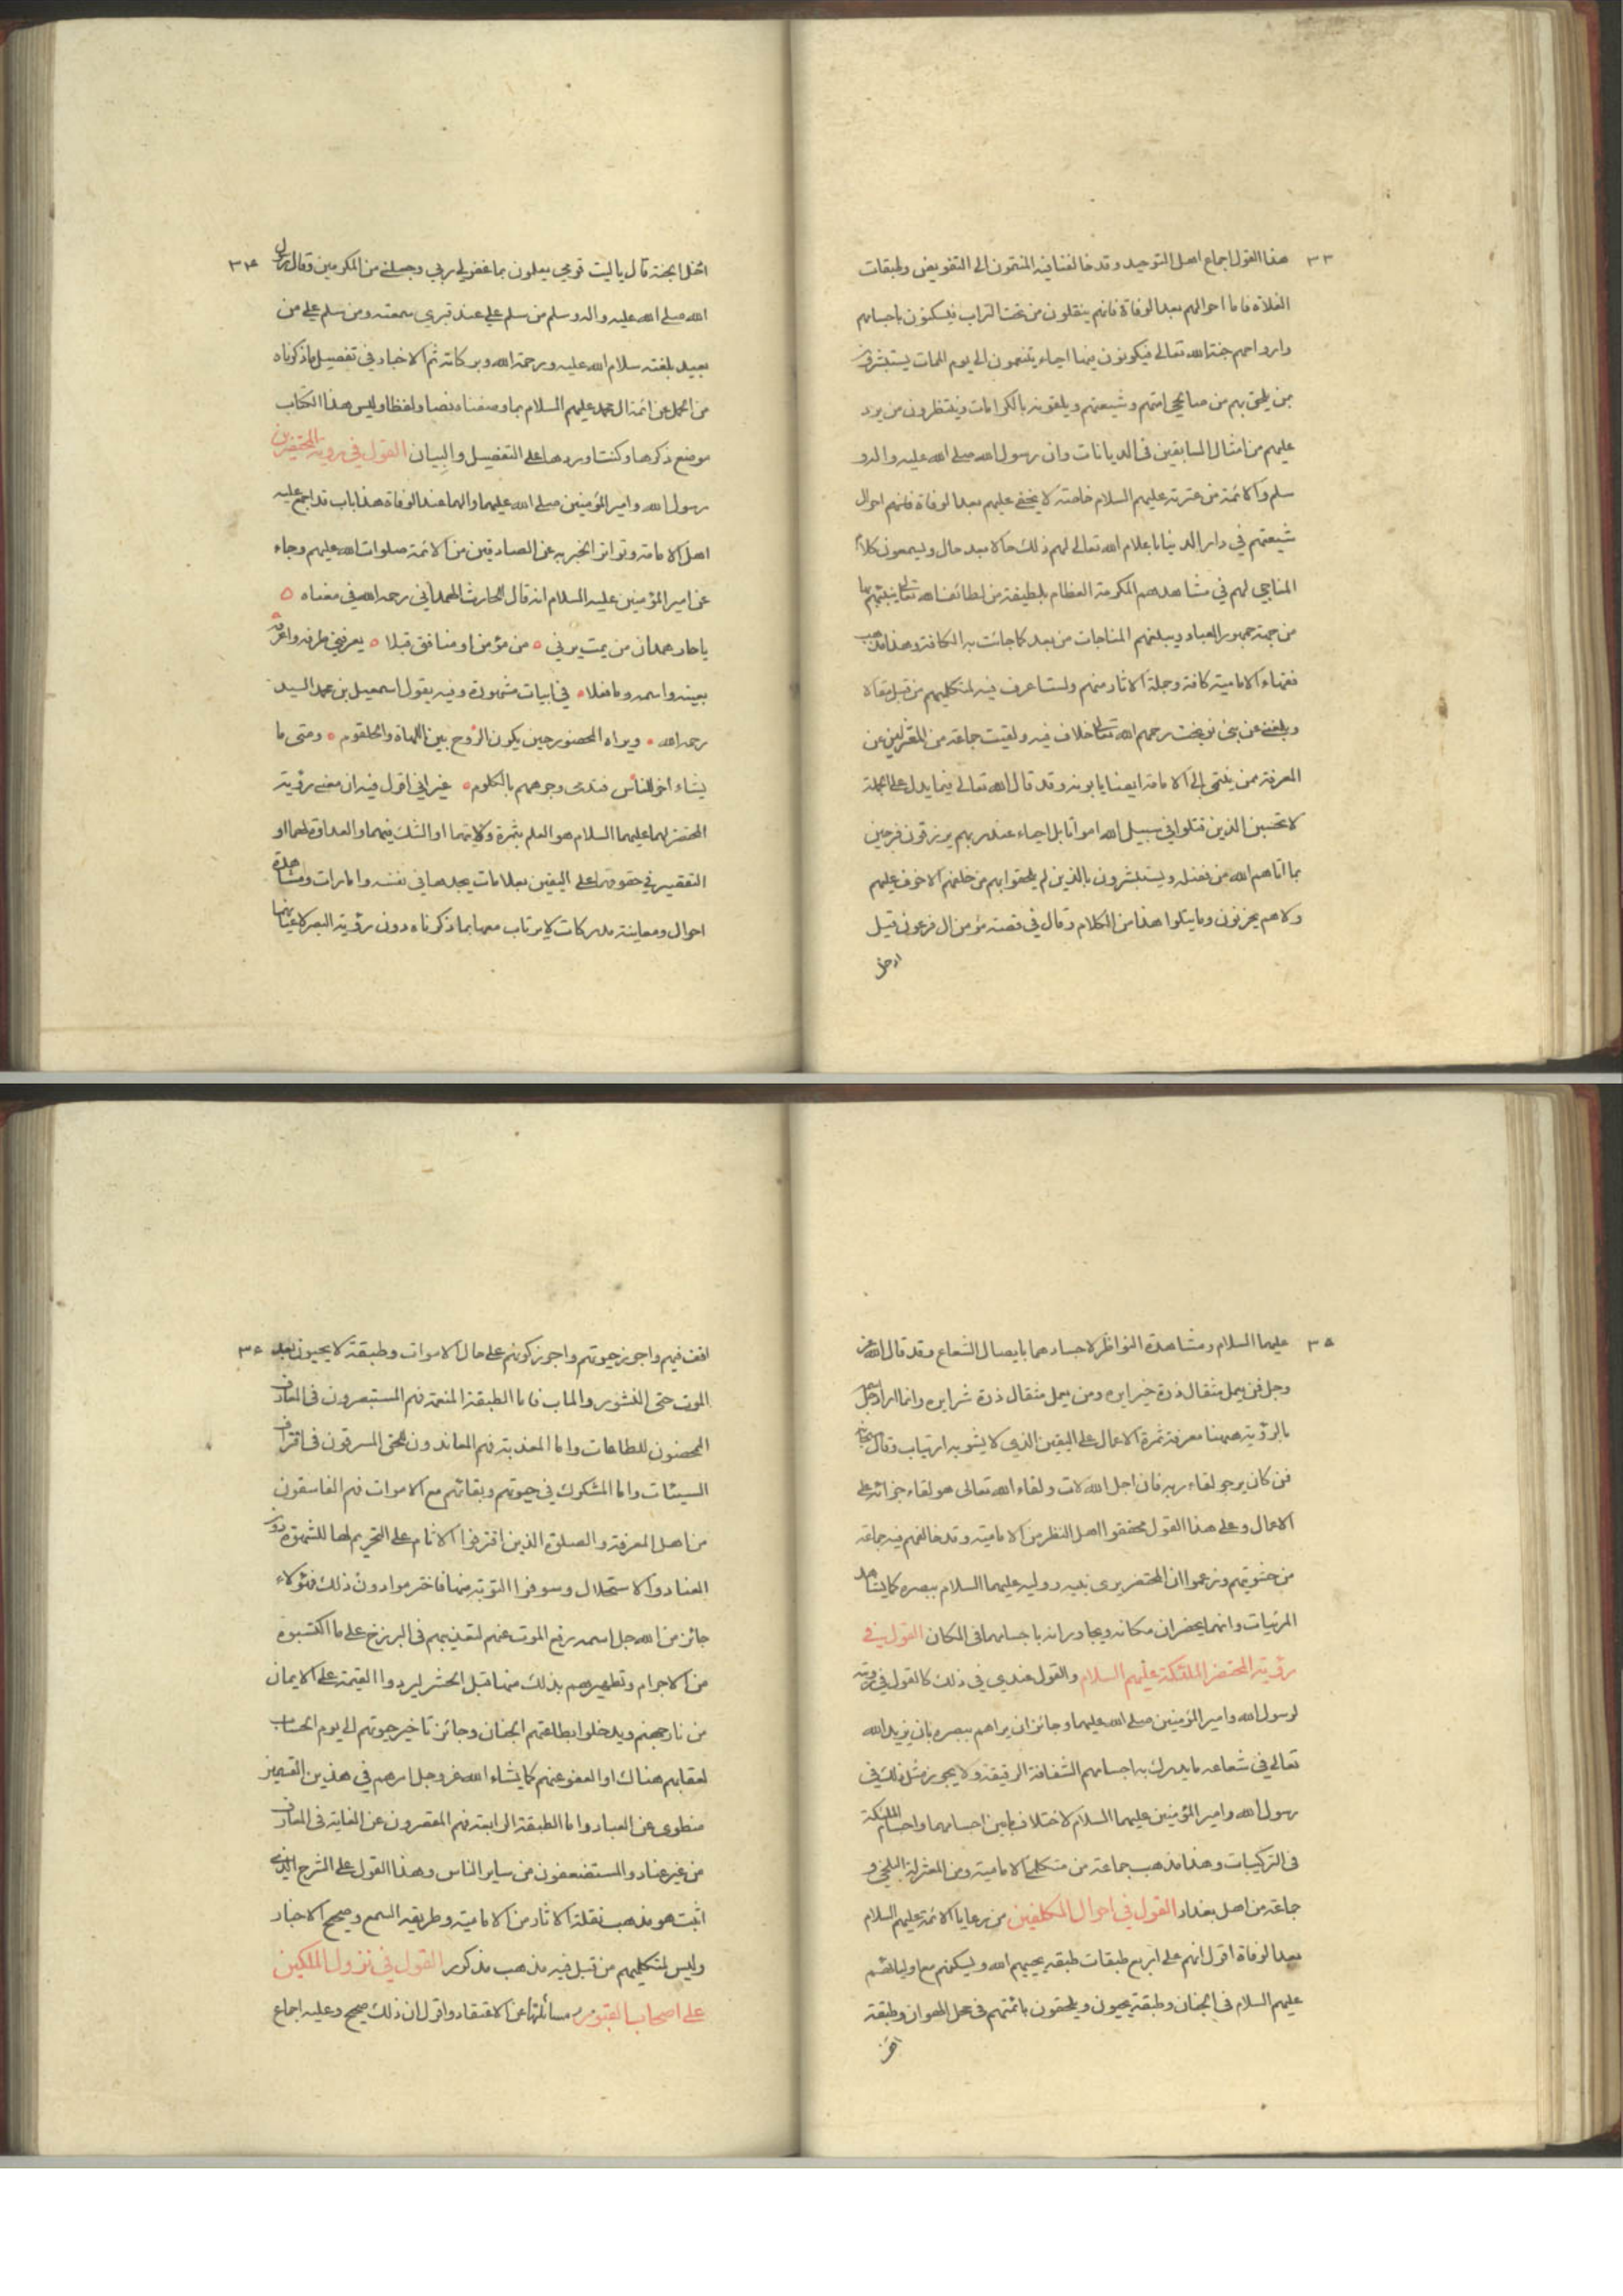 ٣٣
هذا القول اجماع اهل التوحيد وقد خالفنا فيه المنتمون الى التفويض وطبقات
الغلاة فاما احوالهم بعد الوفاة فانهم ينقلون من تحت التراب فيسكنون باجسامهم
وارواحهم جنة الله تعالى فيكونون فيها احياء يتنعمون الى يوم الممات يستبشرون
بمن يلحق بهم من صالحي اممهم وشيعتهم ويلقونه بالكرامات وينتظرون من يرد
عليهم من امثال السابقين في الديانات وان رسول الله صلى الله عليه واله و
سلم والائمة من عترته عليهم السلام خاصة لا يخفى عليهم بعد الوفاة فانهم احوال
شيعتهم في دار الدنيا باعلام الله تعالى لهم ذلك حالا بعد حال ويسمعون كلام
المناجي لهم في مشاهدهم المكرمة العظام بلطيفة من لطائف الله تعالى ينبئهم بها
من جهة جمهور العباد ويبلغهم المناجات من بعد كما جائت به الكافة وهذا مذهب
فقهاء الامامية كافة وجملة الاثار منهم ولست اعرف فيه لمتكلميهم من قبل مقالا
وبلغني عن بني نوبخت رحمهم الله تعالى خلاف فيه ولقيت جماعة من المقصرين عن
المعرفة ممن ينتمي الى الامامة ايضا يابونه وقد قال الله تعالى فيما يدل على الجملة
لا تحسبن الذين قتلوا في سبيل الله امواتا بل احياء عند ربهم يرزقون فرحين
بما اتاهم الله من فضله ويستبشرون بالذين لم يلحقوا بهم من خلفهم الا خوف عليهم
ولا هم يحزنون وما يتلوا هذا من الكلام وقال في قصة مؤمن ال فرعون قيل
ادخل
٣٤
ادخل الجنة قال ياليت قومي يعلون بما غفر لي ربي وجعلني من المكرمين وقال رسول
الله صلى الله عليه واله وسلم من سلم علي عند قبري سمعته ومن سلم علي من
بعيد بلغته سلام الله عليه ورحمة الله وبركاته ثم الاخبار في تفصيل ما ذكرناه
من الجمل عن ائمة ال محمد عليهم السلام بما وصفناه نصا ولفظا وليس هذا الكتاب
موضع ذكرها وكنت اوردها على التفصيل والبيان القول في روية المحتضرين
رسول الله وامير المؤمنين صلى الله عليهما والهما عند الوفاة هذا باب قد اجمع عليه
اهل الامامة وتواتر الخبر به عن الصادقين من الائمة صلوات الله عليهم وجاء
عن امير المؤمنين عليه السلام انه قال للحارث الهمداني رحمه الله في معناه
يا حار همدان من يمت يرني من مؤمن او منافق قبلا يعرفني طرفه واعرفه
بعينه واسمه وما فعلا في ابيات مشهورة وفيه يقول اسمعيل بن محمد السيد
رحمه الله ويراه المحضور حين يكون الروح بين اللهاة والحلقوم ومتى ما
يشاء اخرج للناس فتدمى وجوههم بالكلوم غير اني اقول فيه ان معنى رؤية
المحتضر لهما عليهما السلام هو العلم بثمرة ولايتهما او الشك فيهما والعداوة لهما او
التقصير في حقوقهما على اليقين بعلامات يجدها في نفسه وامارات ومشاهدة
احوال ومعاينة مدركات لا يرتاب معها بما ذكرناه دون رؤية البصر لاعيانهما
٣٥
عليهما السلام ومشاهدة النواظر لاجسادهما بايصال الشعاع وقد قال الله عز
وجل فمن يعمل مثقال ذرة خيرا يره ومن يعمل مثقال ذرة شرا يره وانما اراد جل اسمه
بالرؤية هيهنا معرفة ثمرة الاعمال على اليقين الذي لا يشوبه ارتياب وقال سبحانه
فمن كان يرجو لقاء ربه فان اجل الله لات ولقاء الله تعالى هو لقاء جزائه على
الاعمال وعلى هذا القول محققوا اهل النظر من الامامية وقد خالفهم فيه جماعة
من حشويتهم وزعموا ان المحتضر يرى نبيه ووليه عليهما السلام ببصره كما يشاهد
المرئيات وانهما يحضران مكانه ويجاورانه باجسامهما في المكان القول في
رؤية المحتضر الملئكة عليهم السلام والقول عندي في ذلك كالقول في روية
لرسول الله وامير المؤمنين صلى الله عليهما وجائز ان يراهم ببصره بان يزيد الله
تعالى في شعاعه ما يدرك به اجسامهم الشفافة الرقيقة ولا يجوز مثل ذلك في
رسول الله وامير المؤمنين عليهما السلام لاختلاف ما بين اجسامهما واجسام الملئكة
في التركيبات وهذا مذهب جماعة من متكلمي الامامية ومن المعتزلة البلخي و
جماعة من اهل بغداد القول في احوال المكلفين من رعايا الائمة عليهم السلام
بعد الوفاة اقول انهم على اربع طبقات طبقة يحييهم الله ويسكنهم مع اوليائهم
عليهم السلام في الجنان وطبقة يحيون ويلحقون بائمتهم في محل الهوان وطبقة
اقف
٣٦
اقف فيهم واجوز حيوتهم واجوز كونهم على حال الاموات وطبقة لا يحيون بعد
الموت حتى النشور والماب فاما الطبقة المنعمة فهم المستبصرون في المعارف
المحضون للطاعات واما المعذبة فهم المعاندون للحق المسرفون في اقتراف
السيئات واما المشكوك في حيوتهم وبقائهم مع الاموات فهم الفاسقون
من اهل المعرفة والصلوة الذين اقترفوا الاثام على التحريم لها للشهوة دون
العناد والاستحلال وسوفوا التوبة منها فاخترموا دون ذلك فهؤلاء
جائز من الله جل اسمه رفع الموت عنهم لتعذيبهم في البرزخ على ما اكتسبوه
من الاجرام وتطهيرهم بذلك منها قبل الحشر ليردوا القيمة على الايمان
من نار جهنم ويدخلوا بطاعتهم الجنان وجائز تاخير حيوتهم الى يوم الحساب
لعقابهم هناك او العفو عنهم كما يشاء الله عز وجل امرهم في هذين القسمين
مطوى عن العباد واما الطبقة الرابعة فهم المقصرون عن الغاية في المعارف
من غير عناد والمستضعفون من ساير الناس وهذا القول على الشرح الذي
اثبت هو مذهب نقلة الاثار من الامامية وطريقه السمع وصحيح الاخبار
وليس لمتكلميهم من قبل فيه مذهب مذكور القول في نزول الملكين
على اصحاب القبور مسائلتها عن الاعتقاد واقول ان ذلك صحيح وعليه اجماع